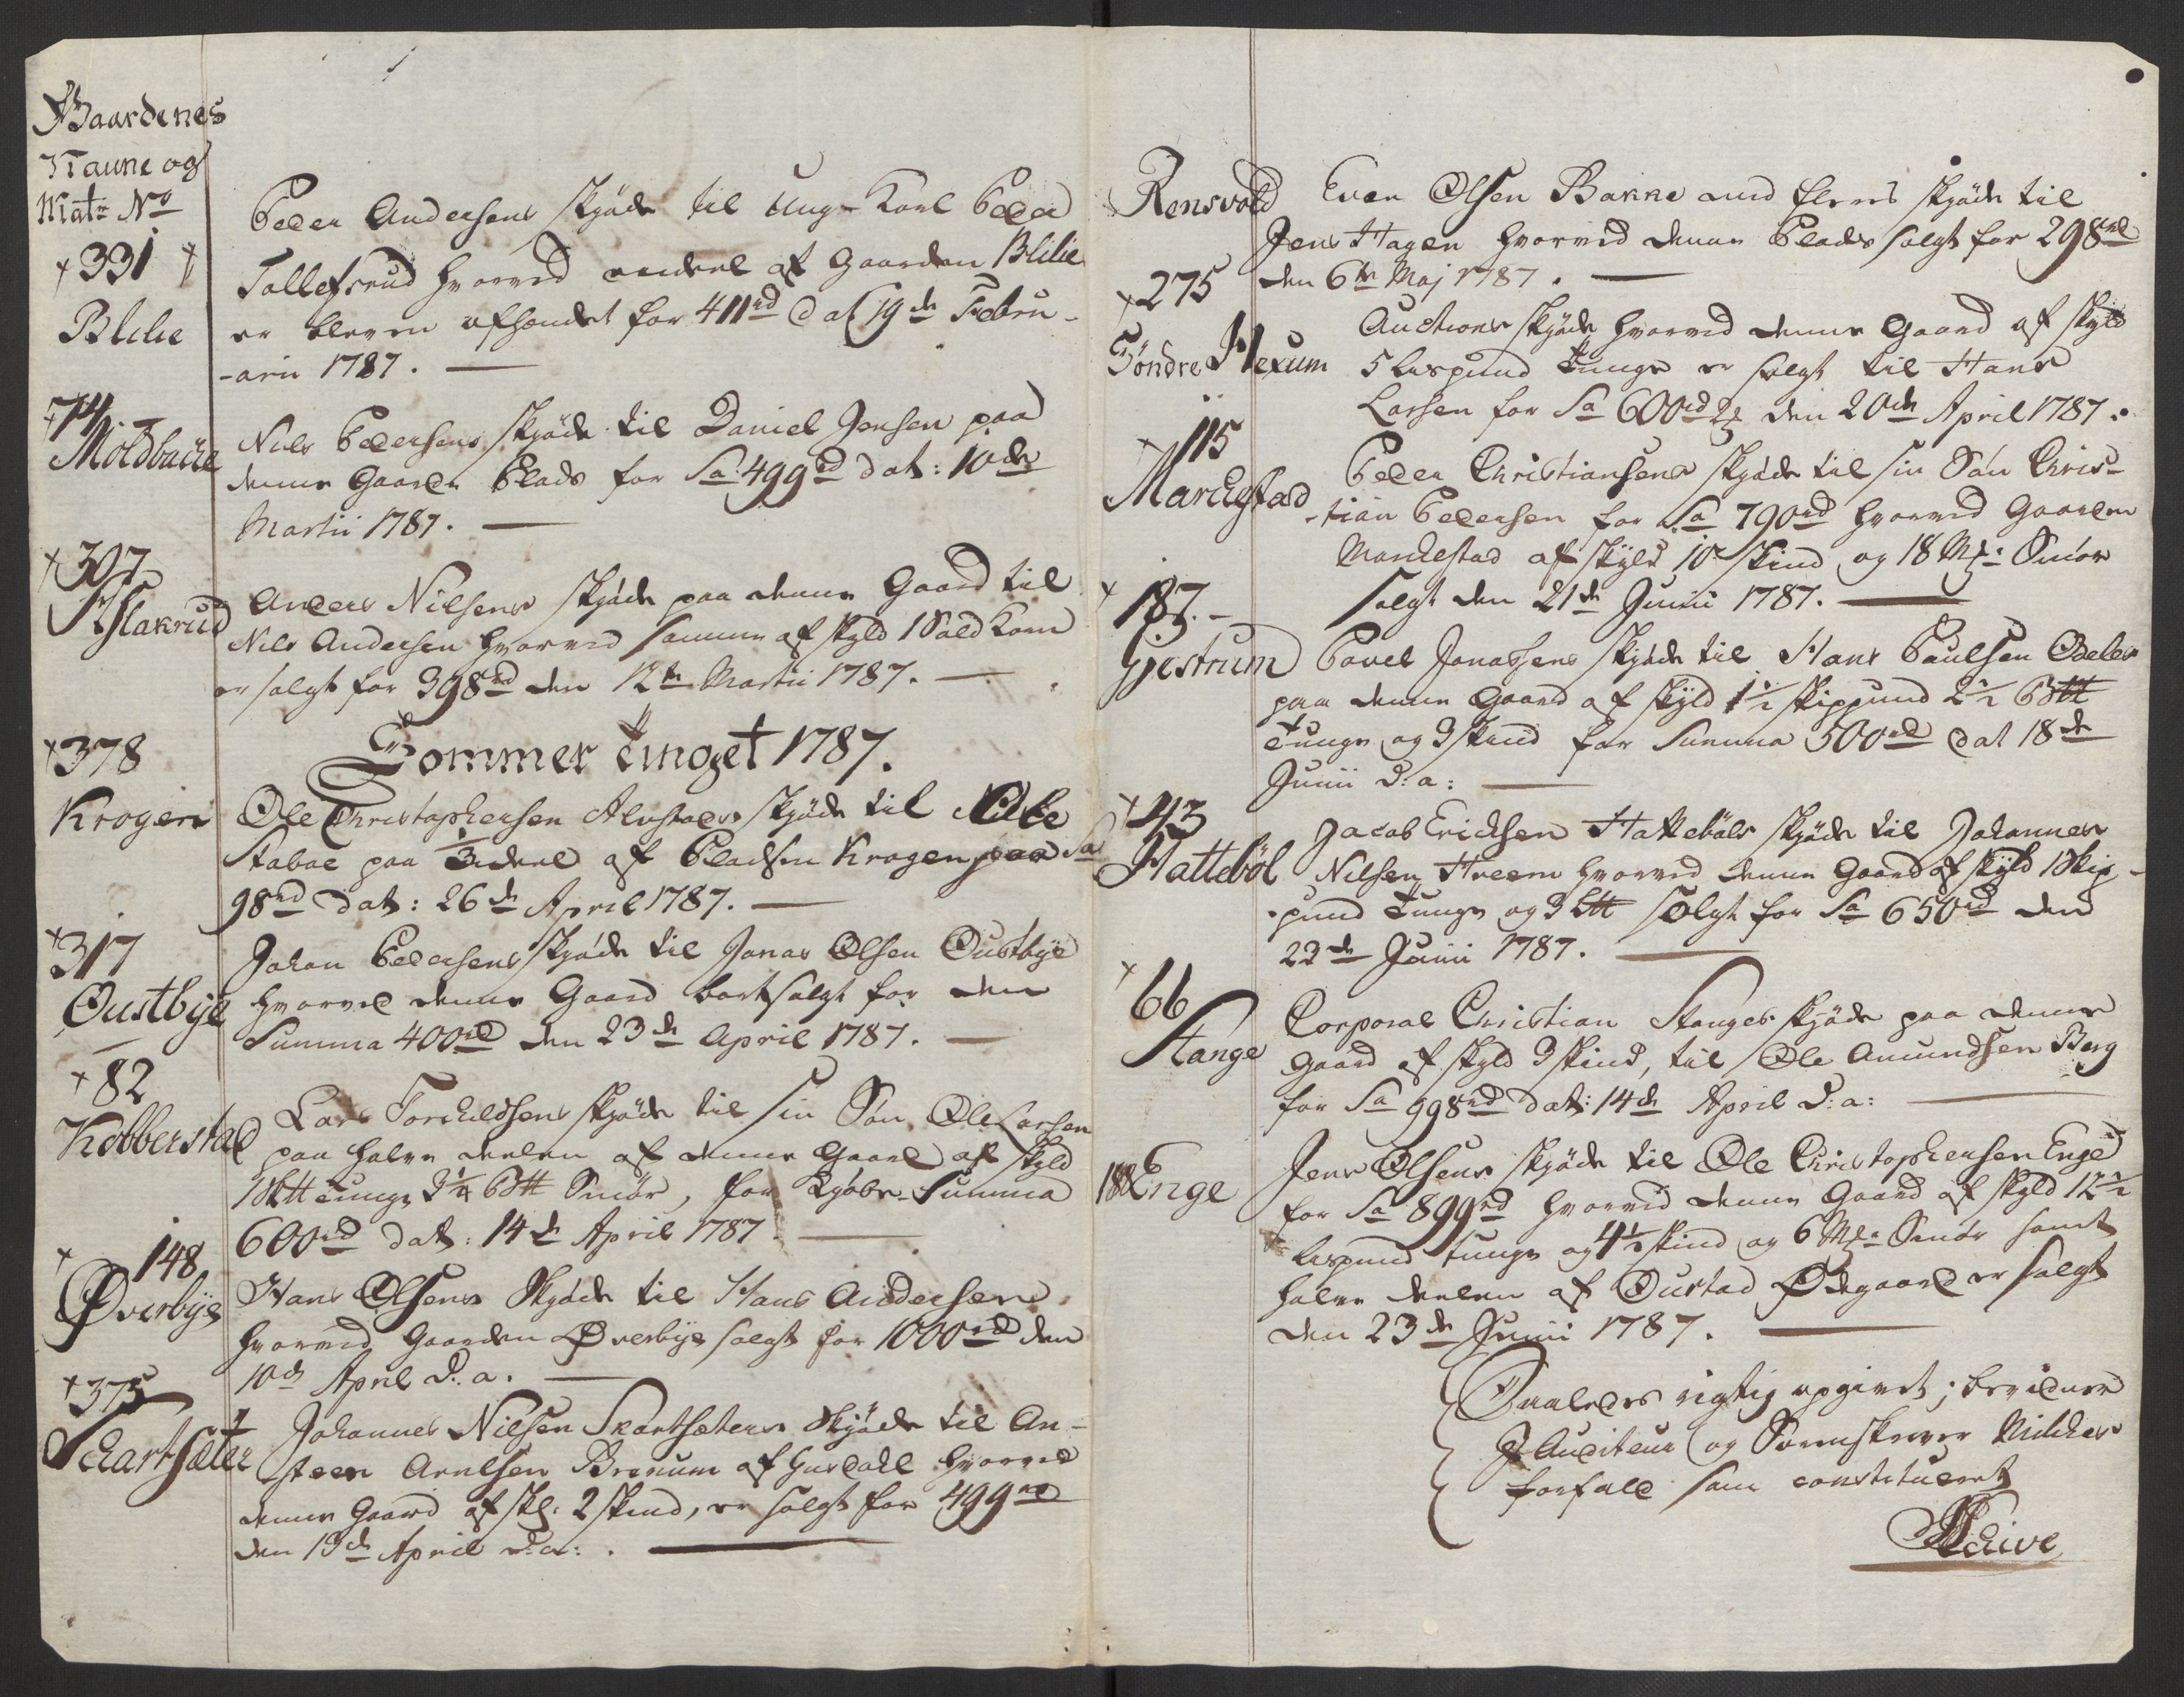 Gaardenes
Naune og
Mat: No
331
Blilie
Peder Andersens Skjøde til Unge Karl Peder
Tollefsrud hvorved endeel af Gaarden Blilie
er bleven afhændet for 411rd Dat 19de Febru-
-arii 1787.
74
Moldbache
Niels Pedersens Skjøde til Daniel Jensen paa
denne Gaards Plads for Sa 499rd dat: 10de
Martii 1787.
307
Aslakrud
Anders Nilsens Skjøde paa denne Gaard til
Nils Andersen hvorved samme af skyld 1 Sold Korn
er solgt for 398rd den 12te Martii 1787.
Sommer tinget 1787.
378
Krogen
Ole Christophersen Alfstads Skjøde til
Stabae paa 1/3 deel af Pladsen Krogen Sa
98rd dat: 26de April 1787.
317
Oustbye
Johan Pedersens Skjøde til Jonas Olsen Oustbye
hvorved denne Gaard bortsolgt for den
Summa 400rd den 23de April 1787.
82
Kobberstad
Lars Torchildsens Skjøde til sin Søn Ole Larsen
paa halve deelen af denne Gaard af skyld
1 Sk℔ tunge 2 1/4 B℔ Smør, for Kjøbe-Summa
600rd dat: 14de April 1787
148
Øverbye
Hans Olsens Skjøde til Hans Andersen
hvorved Gaarden Øverbye solgt for 1000rd den
10de April d: a.
375
Schartsæter
Johannes Nilsen Skartsæters Skjøde til An-
steen Arnesen Brenum af Gusdahl hvorved
denne Gaard af sk: 2 skind, er solgt for 499rd
den 13de April d: a:
Rensvold
Even Olsen Bakke med fleres Skjøde til
Jens Hagen hvorved denne Plads solgt for 298rd
den 6te Maj 1787.
275
Søndre Hexum
Auctions Skjøde hvorved denne Gaard af skyld
5 Lispund tunge er solgt til Hans
Larsen for Sa 600rd 2 den 20de April 1787.
115
Marchestad
Peder Christiansens Skjøde til sin Søn Chris-
-tian Pedersen for Sa 790rd hvorved Gaarden
Marchestad af skyld 10 skind og 18 Mk: Smør
solgt den 21de Junii 1787.
187.
Gjestrum
Povel Jonassens Skjøde til Hans Paulsen Odeler
paa denne Gaard af skyld 1 1/2 skippund 2 1/2 B℔
tunge og 3 skind for Summa 500rd dat 18de
Junii d: a:
43
Hatteböl
Jacob Erichsen Hattebøls Skjøde til Johannes
Nilsen Hreem hvorved denne Gaard af skyld 1 Skip-
-pund tunge og 3 L℔ solgt for Sa 650rd den
22de Junii 1787.
66
Stange
Corporal Christian Stanges Skjøde paa denne
Gaard af skyld 3 skind, til Ole Amundsen Berg
for Sa 998rd dat: 14de April d: a:
188
Enge
Jens Olsens Skjøde til Ole Christophersen Enge
for Sa 899rd hvorved denne Gaard af skyld 12 1/2
Lispund tunge og 4 1/2 skind og 6 Mk: Smør samt
halve deelen af Oustad Ødegaard er solgt
den 23de Junii 1787.
Saaledes rigtig opgivet; bevidner
I Auditeur og Sorenskriver Milches
forfald som constitueret
Schive